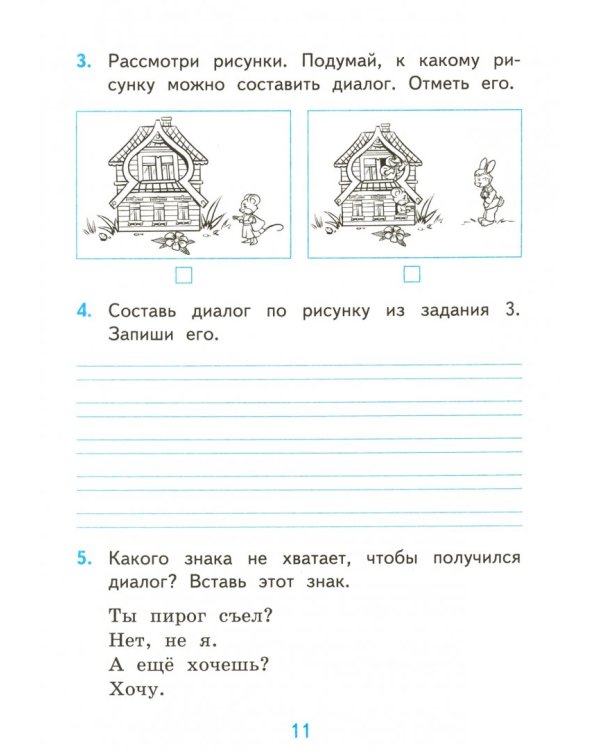 3. Рассмотри рисунки. Подумай, к какому ри-
сунку можно составить диалог. Отметь его.
4. Составь диалог по рисунку из задания 3.
Запиши его.
5. Какого знака не хватает, чтобы получился
диалог? Вставь этот знак.
Ты пирог съел?
Нет, не я.
А ещё хочешь?
Хочу.
11